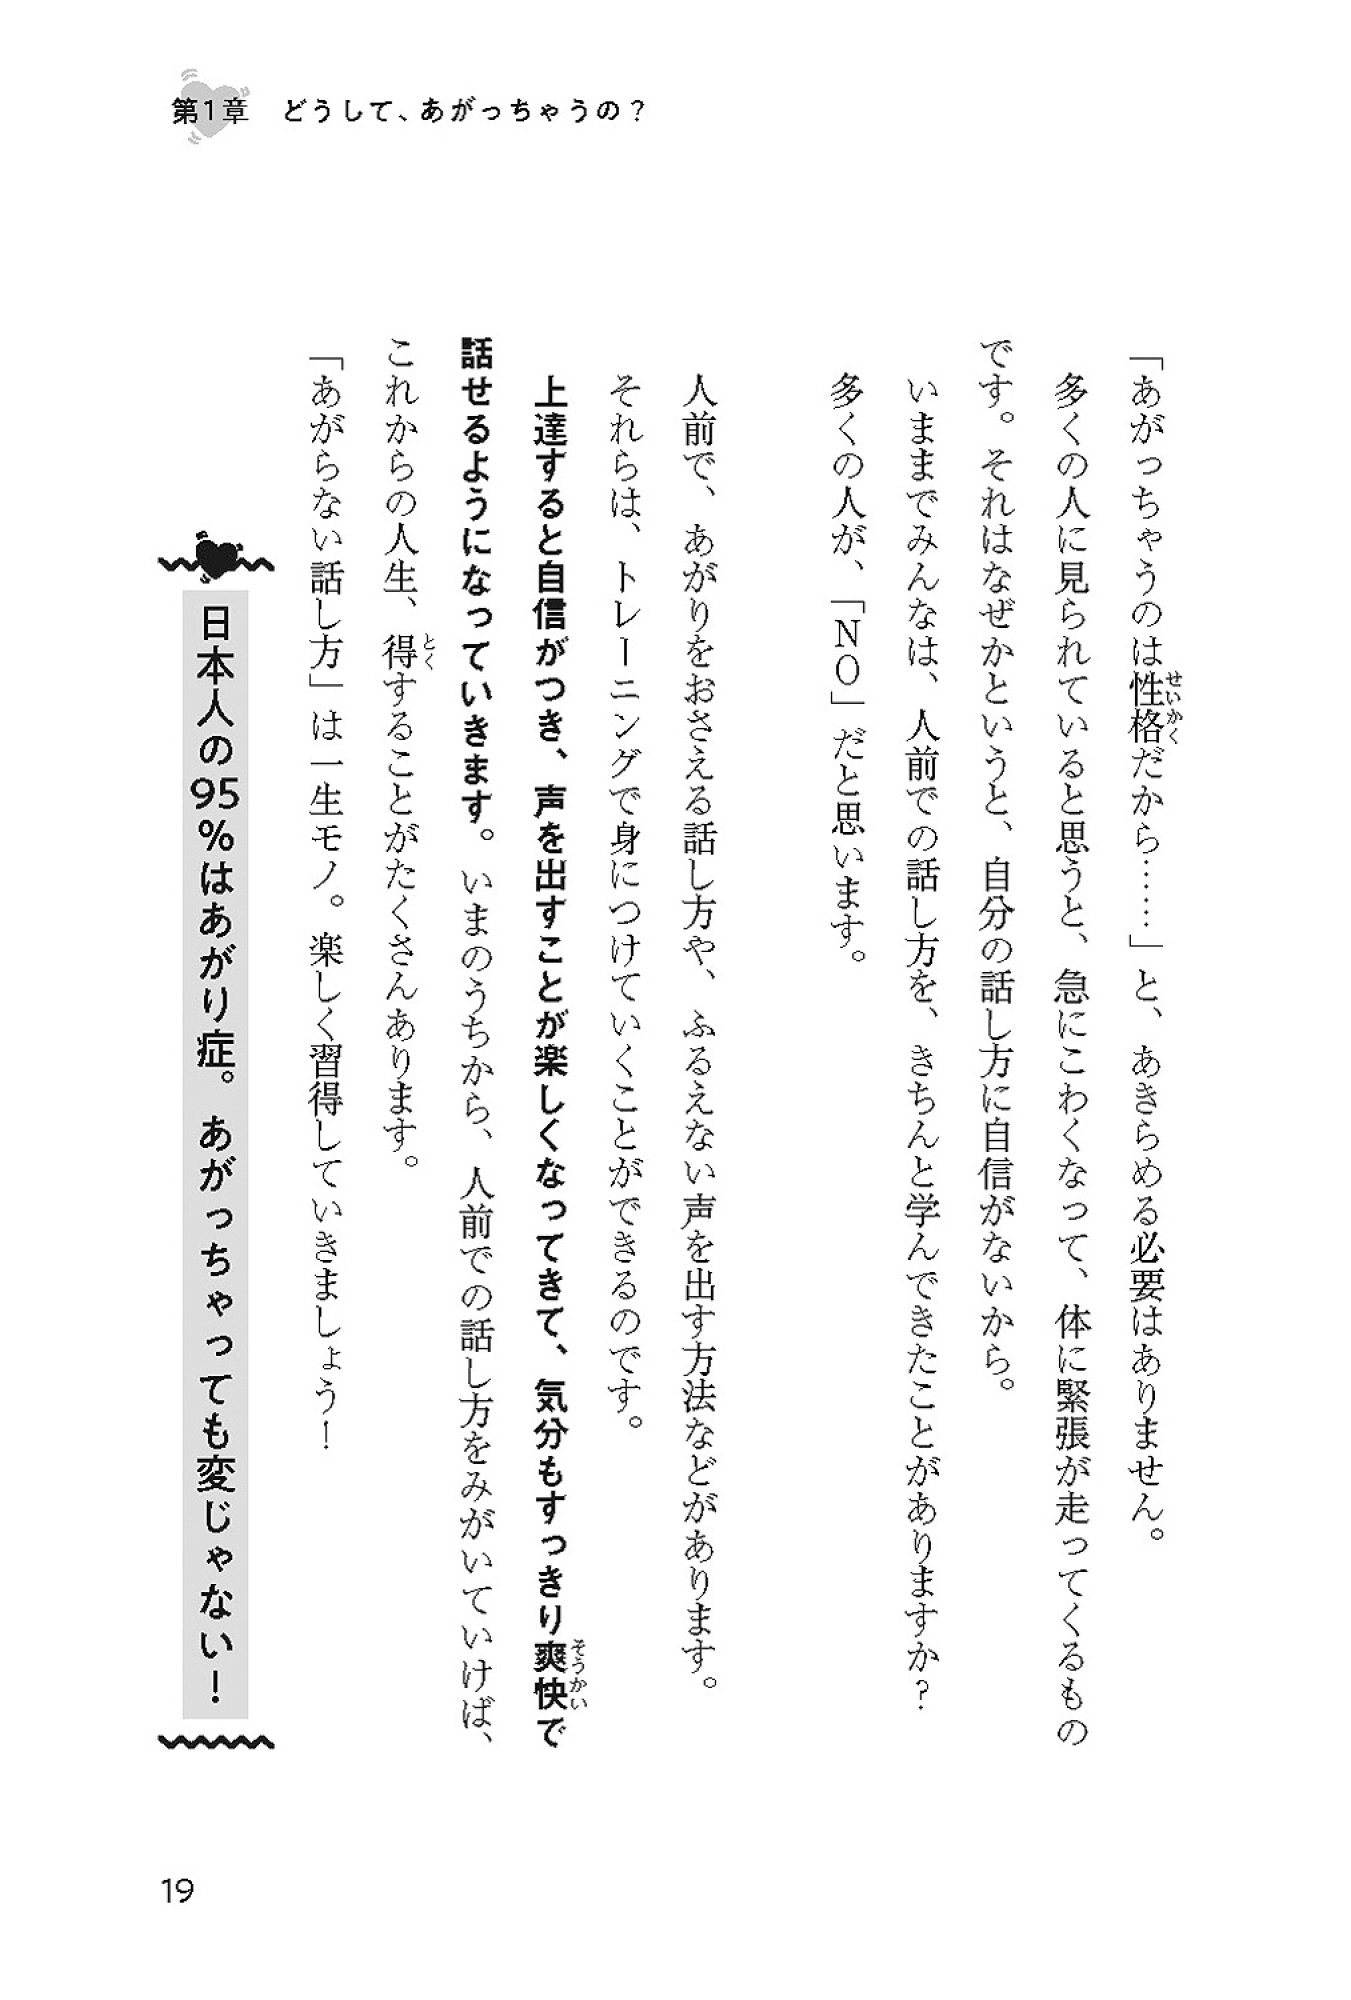 第1章 どうして、あがっちゃうの？
「あがっちゃうのは性格だから……」と、あきらめる必要はありません。
せいかく
多くの人に見られていると思うと、急にこわくなって、体に緊張が走ってくるもの
です。それはなぜかというと、自分の話し方に自信がないから。
いままでみんなは、人前での話し方を、きちんと学んできたことがありますか？
多くの人が、「NO」だと思います。
人前で、あがりをおさえる話し方や、ふるえない声を出す方法などがあります。
それらは、トレーニングで身につけていくことができるのです。
上達すると自信がつき、声を出すことが楽しくなってきて、気分もすっきり爽快で
そうかい
話せるようになっていきます。いまのうちから、人前での話し方をみがいていけば、
これからの人生、得することがたくさんあります。
とく
「あがらない話し方」は一生モノ。楽しく習得していきましょう！
日本人の95％はあがり症。あがっちゃっても変じゃない！
19